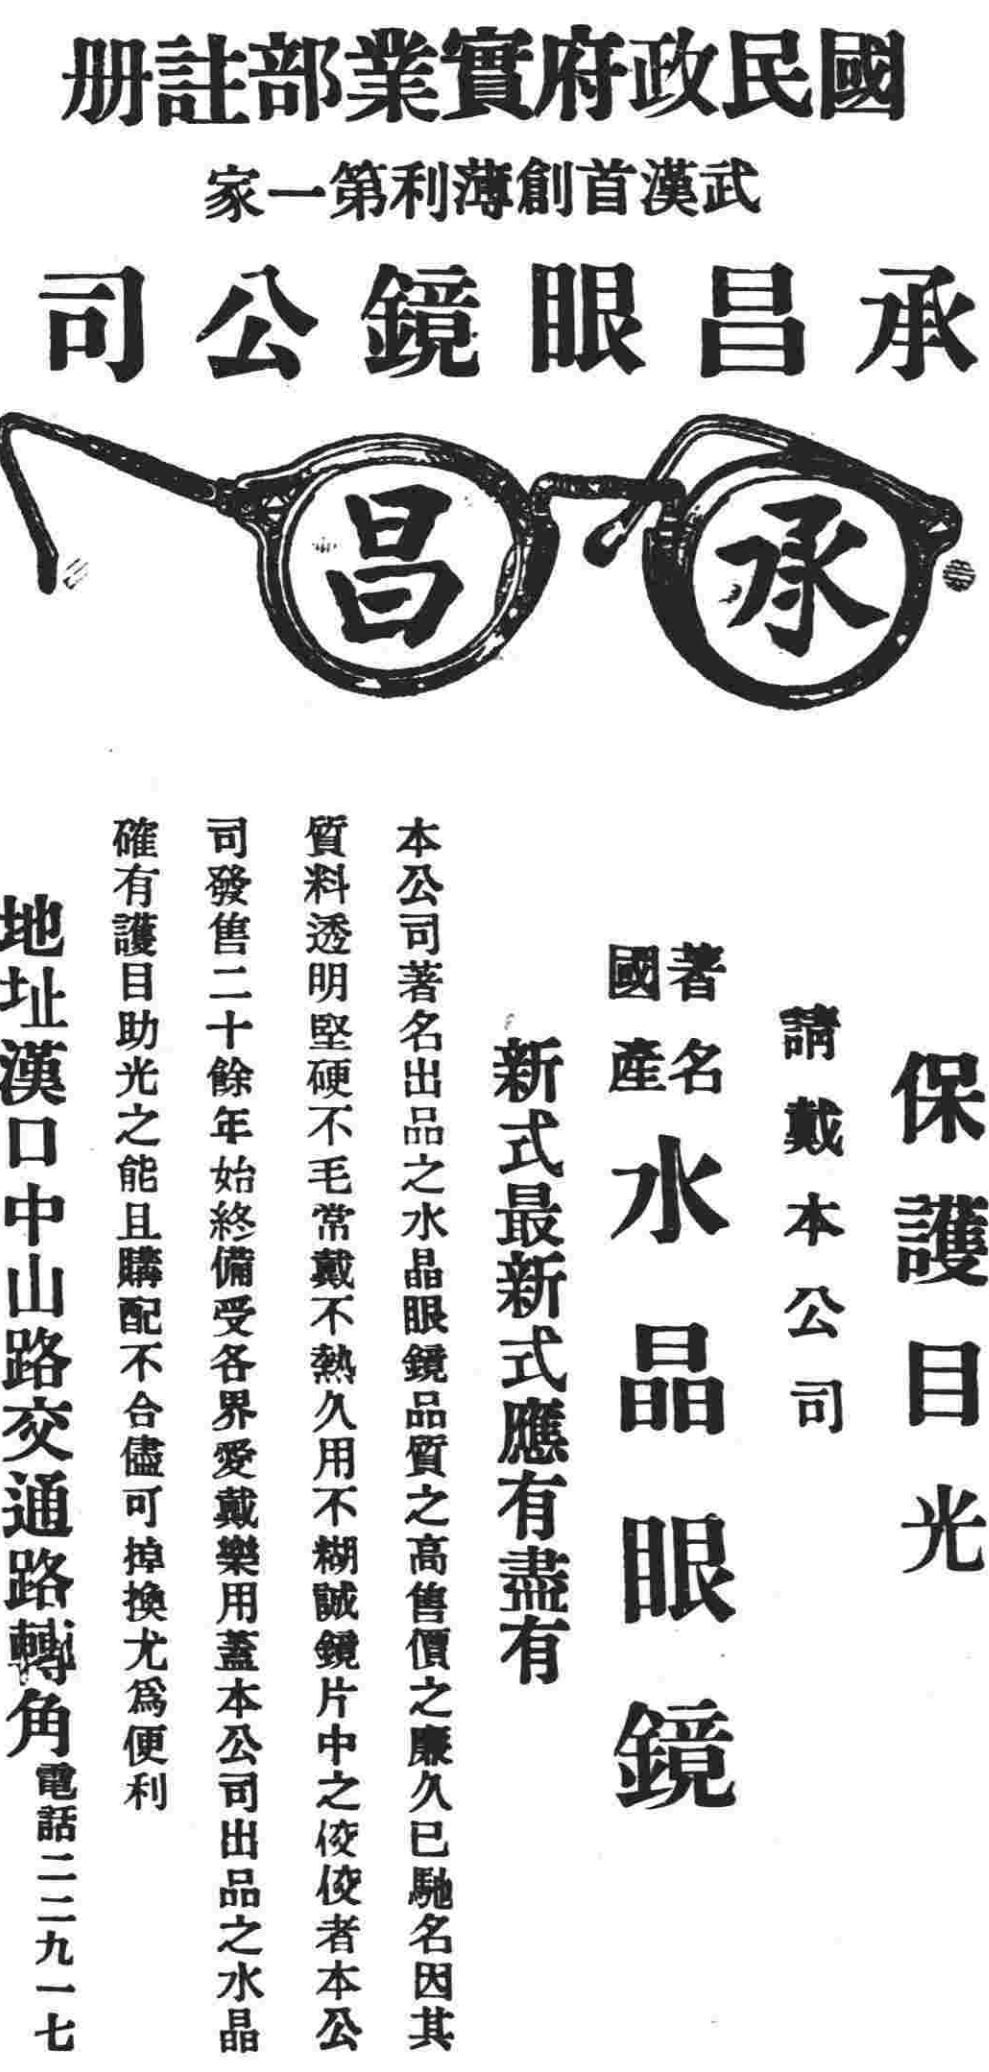 國民政府實業部註册
武漢首創薄利第一家
承昌眼鏡公司
承昌
保護目光
請戴本公司
著名國產水晶眼鏡
新式最新式應有盡有
本公司著名出品之水晶眼鏡品質之高售價之廉久已馳名因其
質料透明堅硬不毛常戴不熱久用不糊誠鏡片中之佼佼者本公
司發售二十餘年始終備受各界愛戴樂用蓋本公司出品之水晶
確有護目助光之能且購配不合儘可掉換尤爲便利
地址漢口中山路交通路轉角電話二二九一七